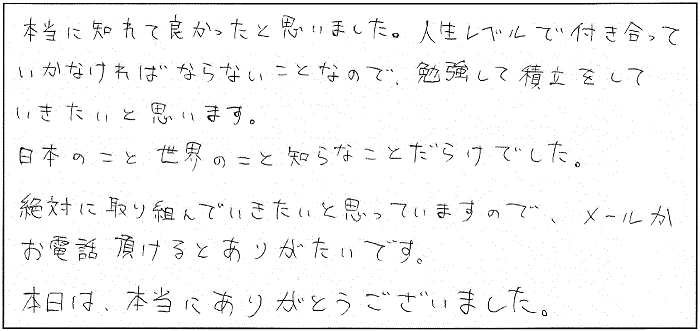 本当に知れて良かったと思いました。人生レベルで付き合って
いかなければならないことなので、勉強して積立をして
いきたいと思います。
日本のこと世界のこと知らなことだらけでした。
絶対に取り組んでいきたいと思っていますので、メールか
お電話頂けるとありがたいです。
本日は、本当にありがとうございました。